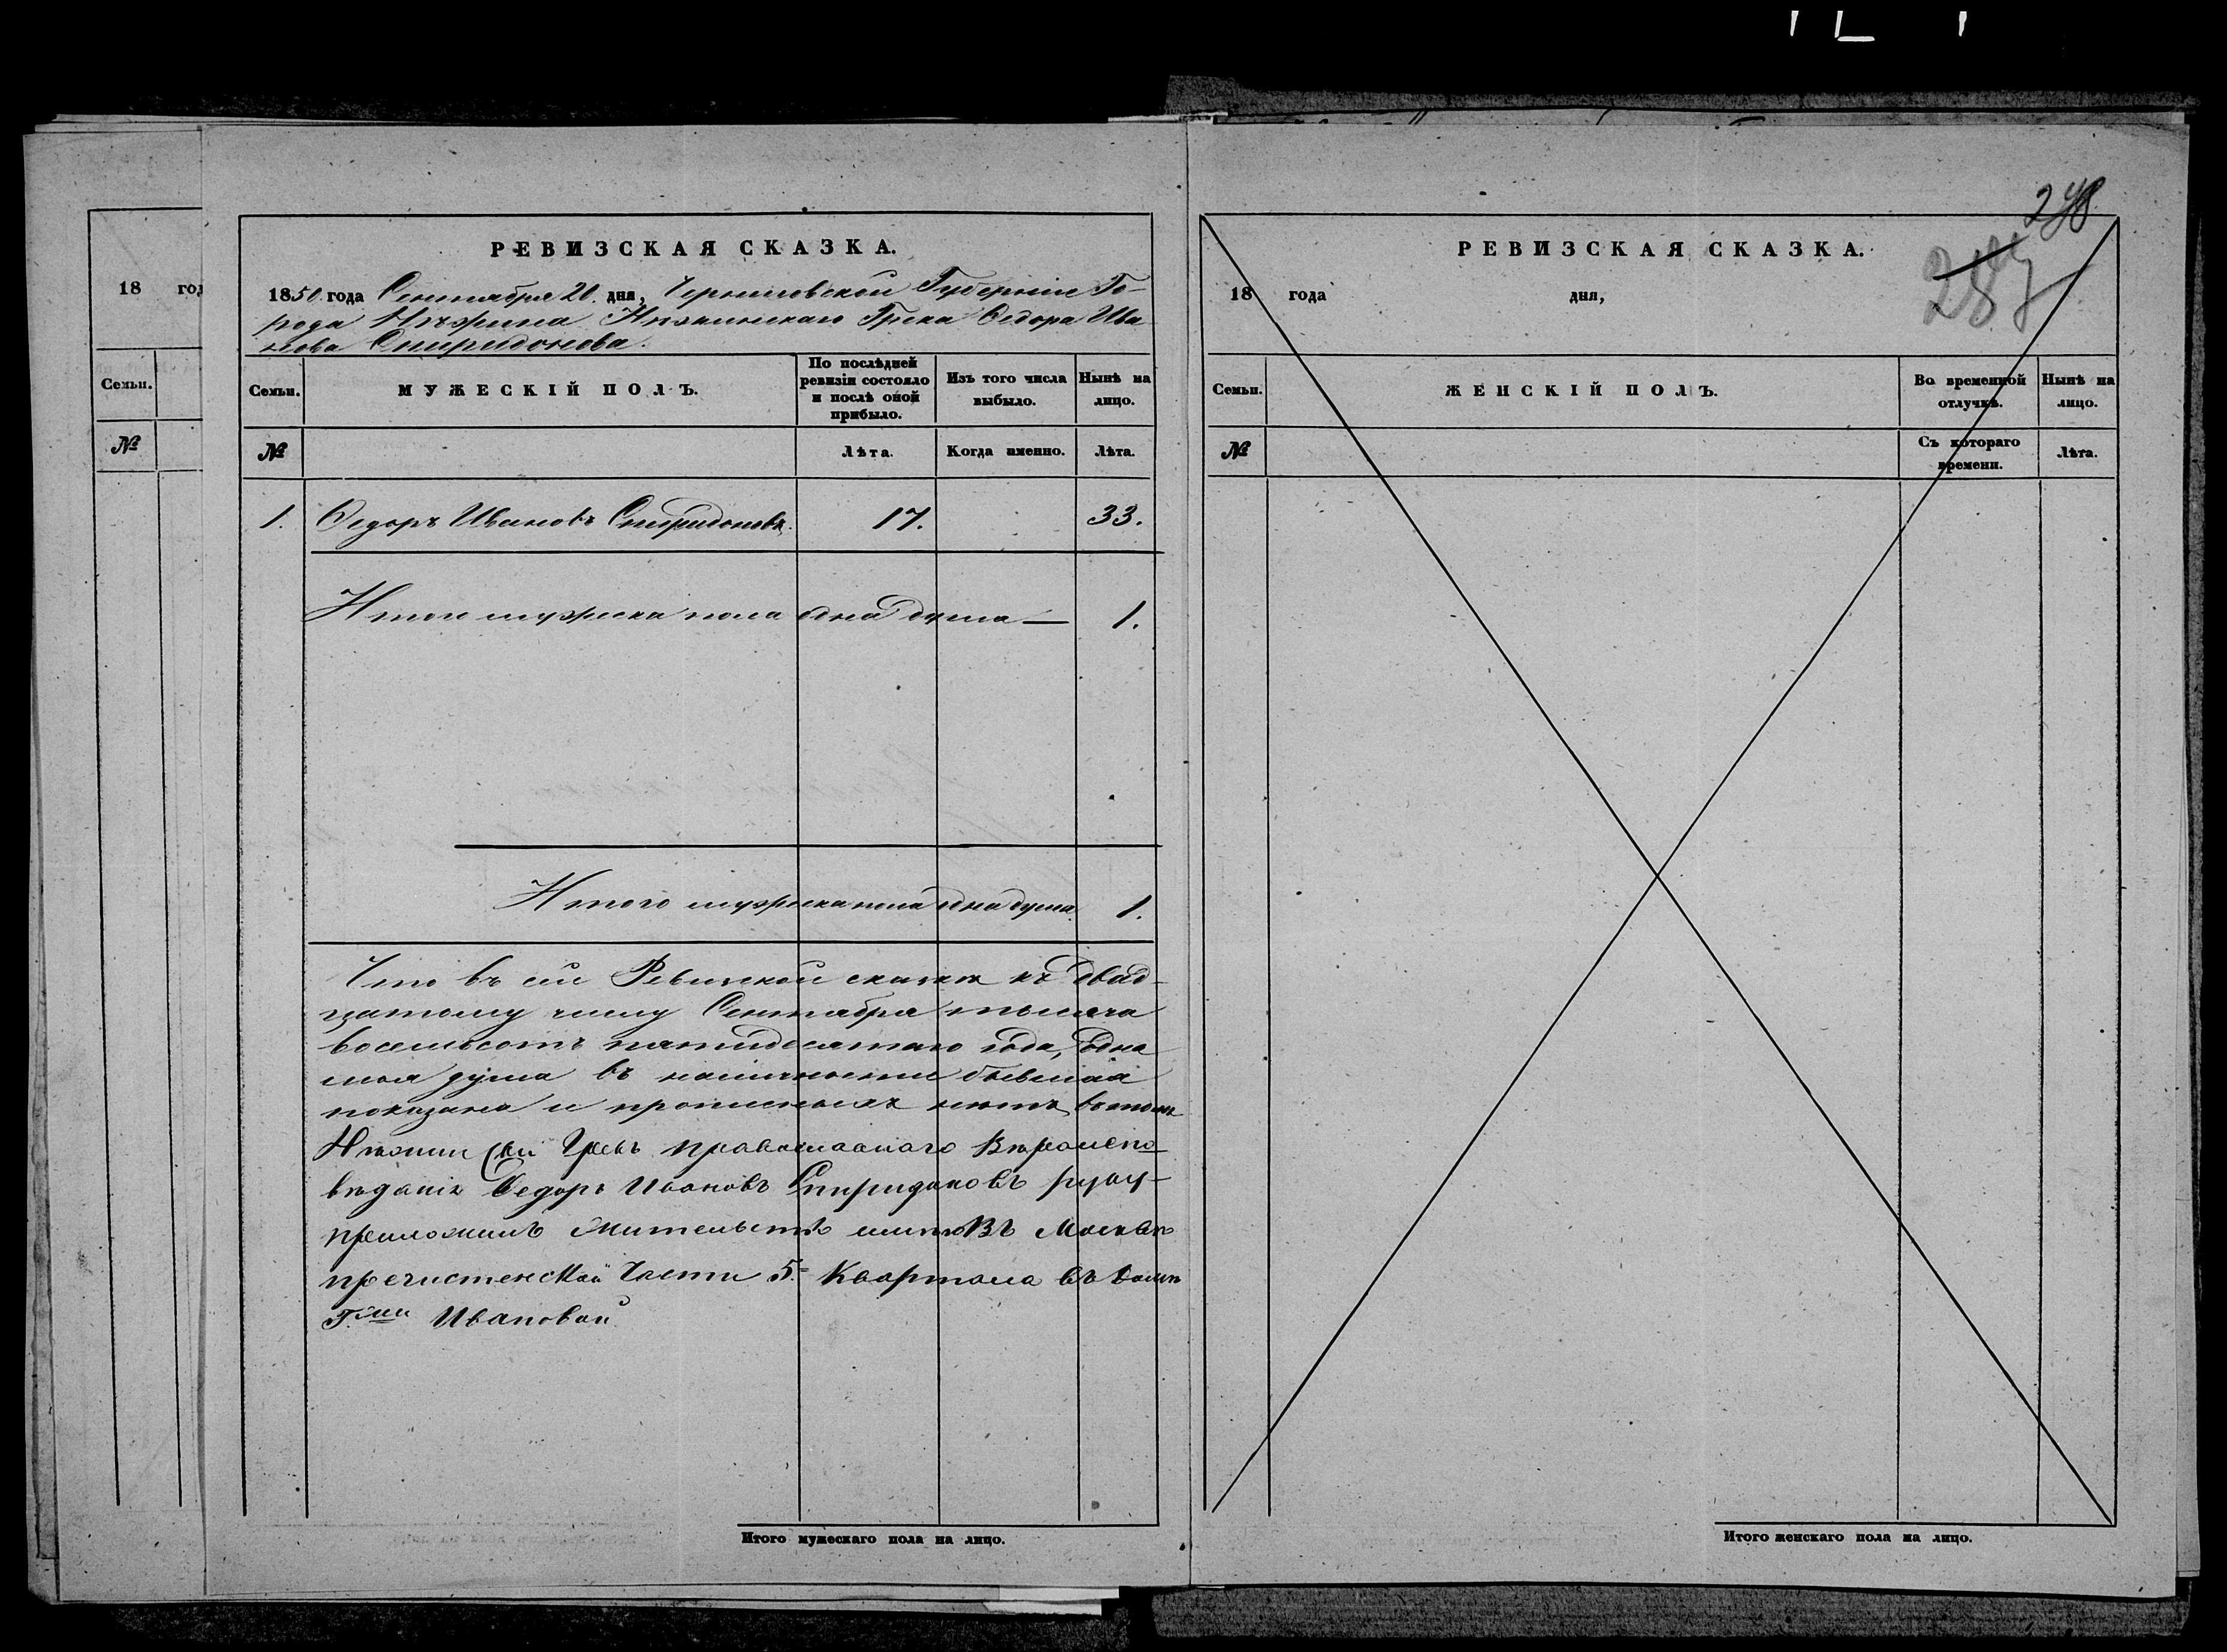 18 год
Семьи.
№
РЕВИЗСКАЯ СКАЗКА.
1850 года Сентября 20. дня, Черниговской Губерніи Го-
рода Нѣжина Нѣжинскаго Грека Ѳедора Ива
нова Спиридонова.
Семьи. МУЖЕСКІЙ ПОЛЪ. По послѣдней ревизіи состояло и послѣ оной прибыло. Изъ того числа выбыло. Нынѣ на лицо.
№ Лѣта. Когда именно. Лѣта.
1. Ѳедоръ Ивановъ Спиридоновъ. 17. 33.
Итого мужеска пола одна душа — 1.
Итого мужеска пола одна душа. 1.
Что въ сей Ревизской сказкѣ къ двад-
цатому числу Сентября тысяча
восемьсотъ пятидесятаго года, одна
моя душа въ наличности бывшая
показана и прописныхъ нѣтъ, въ томъ
Нѣжинскій Грекъ православнаго Вѣроиспо-
вѣданія Ѳедоръ Ивановъ Спиридоновъ руку
приложилъ Жительство имѣю Въ Москвѣ
пречистенской Части 5. Квартала въ домѣ
Г.жи Ивановой
Итого мужескаго пола на лицо.
248
287
РЕВИЗСКАЯ СКАЗКА.
18 года дня,
Семьи. ЖЕНСКІЙ ПОЛЪ. Во временной отлучкѣ. Нынѣ на лицо.
№ Съ котораго времени. Лѣта.
Итого женскаго пола на лицо.